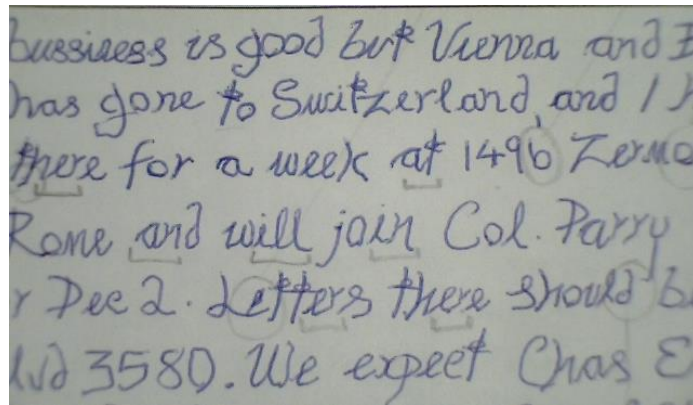 bussiness is good but Vienna and
has gone to Switzerland, and I
there for a week at 1496 Zerm
Rome and will join Col. Parry
r Dec 2. Letters there should b
lvd 3580. We expect Chas E